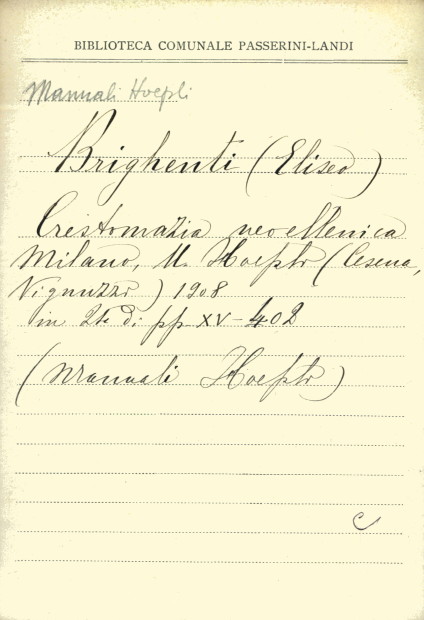 BIBLIOTECA COMUNALE PASSERINI-LANDI
Manuali Hoepli
Brighenti (Eliseo)
Crestomazia neoellenica
Milano, U. Hoepli (Cesena,
Vignuzzi) 1908
in 24° di pp XV-402
(Manuali Hoepli)
C